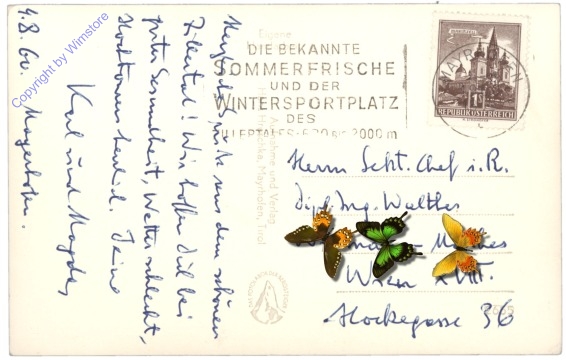 Herzliche Grüße aus dem schönen
Zillertal! Wir hoffen Dich bei
guter Gesundheit, Wetter schlecht,
Deine
Karl und Magda
4.8.60. Mayrhofen.
DIE BEKANNTE
SOMMERFRISCHE
UND DER
WINTERSPORTPLATZ
DES
ZILLERTALES 630 bis 2000 m
REPUBLIK ÖSTERREICH
Herrn Sekt. Chef i. R.
Dipl. Ing. Walther
Wien XVIII.
Hockegasse 36
Eigene
Aufnahme und Verlag
Mayrhofen, Tirol
Copyright by Wimstore